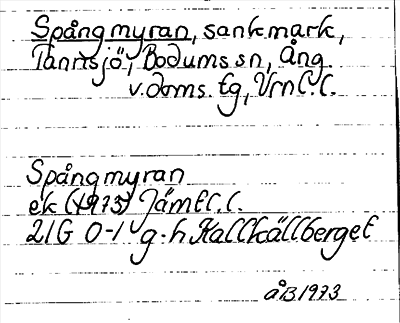 Spångmyran, sankmark,
Tannsjö, Bodums sn, Ång.
v.doms. tg, Vrnl. l.
Spångmyran
ek (1973) Jämtl. l.
21G 0-1 g-h Kallkällberget
åB 1973